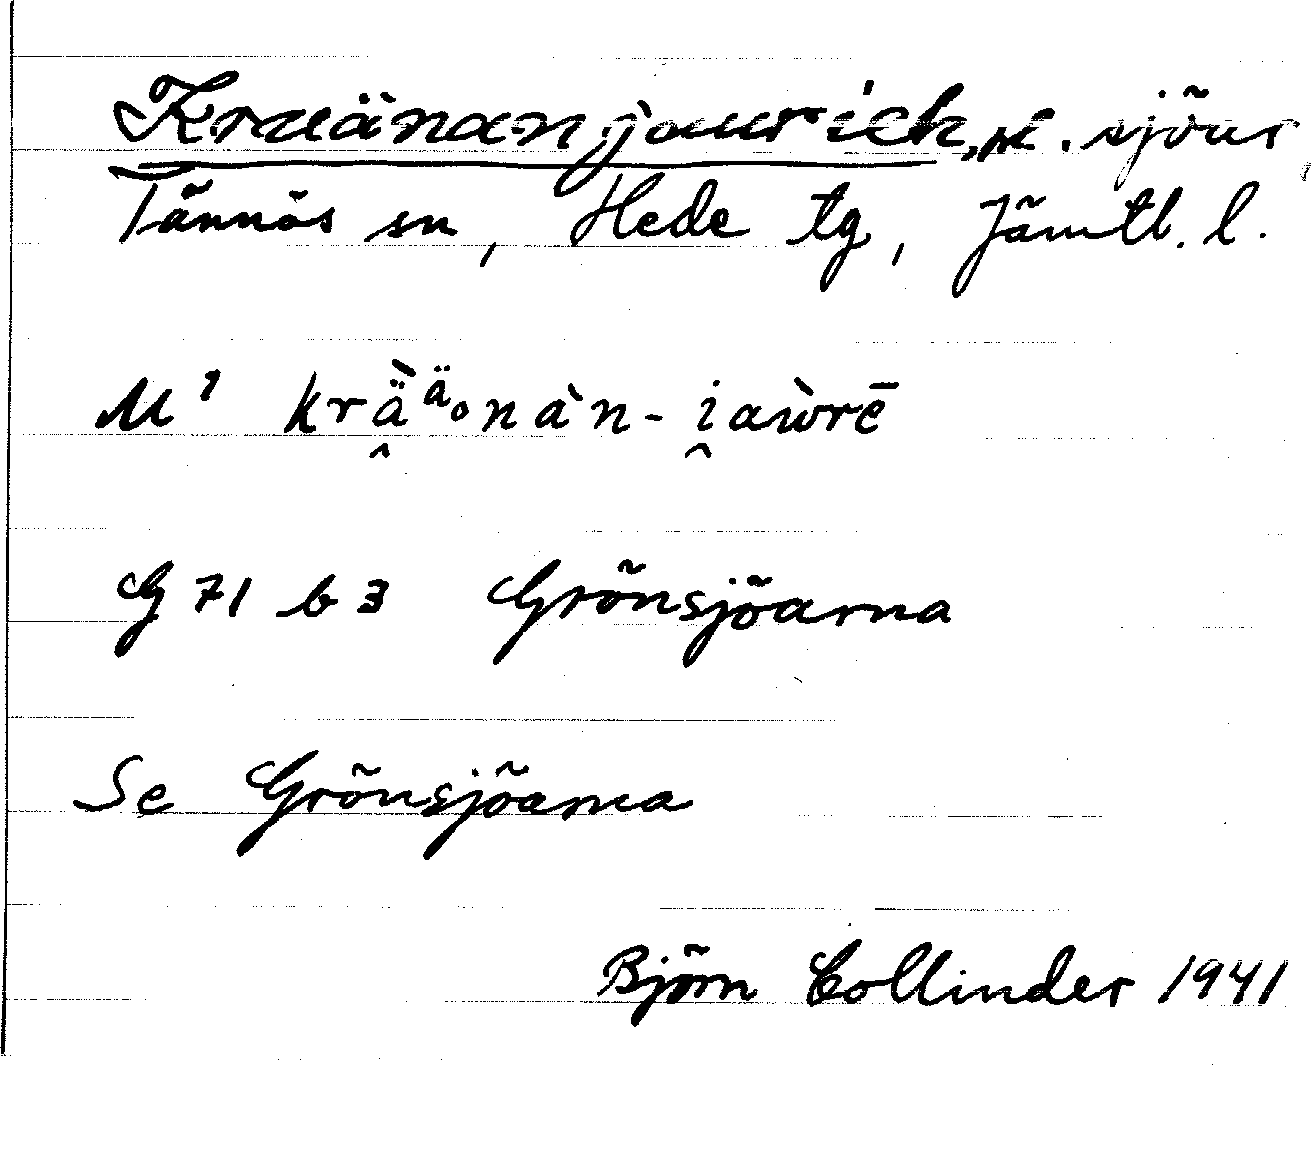 Kruänanjaurieh, pl. sjöar,
Tännäs sn, Hede tg, Jämtl. l.
M¹ krä̭̀ᵃ̈ₒnàn-i̭aẁrē
G 71 b 3 Grönsjöarna
Se Grönsjöarna
Björn Collinder 1941